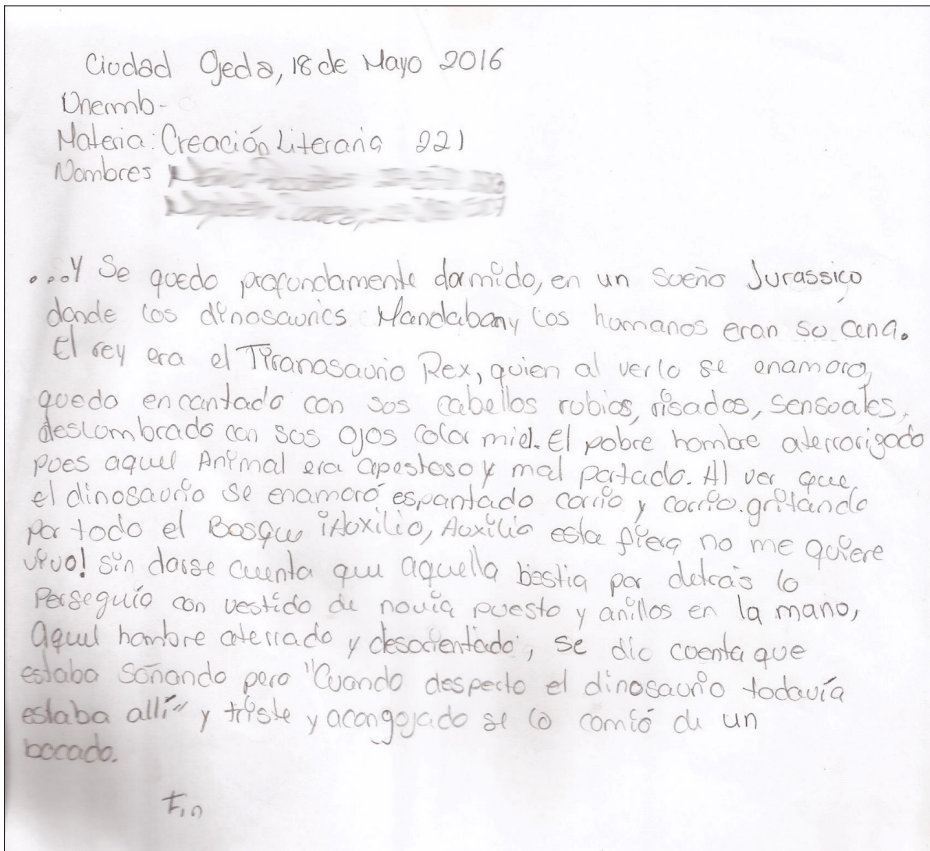 Ciudad Ojeda, 18 de Mayo 2016
Unermb-
Materia: Creación Literaria 221
Nombres
...Y Se quedo profundamente dormido, en un sueño Jurassico
donde los dinosaurios Mandaban y los humanos eran su cena.
El rey era el Tiranosaurio Rex, quien al verlo se enamoro,
quedo encantado con sus cabellos rubios, risados, sensuales,
deslumbrado con sus ojos color miel. El pobre hombre aterrorigado
pues aquel Animal era apestoso y mal portado. Al ver que
el dinosaurio se enamoró espantado corrio y corrio. gritando
por todo el Bosque ¡Auxilio, Auxilio esta fiera no me quiere
vivo! sin darse cuenta que aquella bestia por detrás lo
Perseguía con vestido de novia puesto y anillos en la mano,
aquel hombre aterrado y desorientado, se dio cuenta que
estaba soñando pero "Cuando desperto el dinosaurio todavía
estaba allí" y triste y acongojado se lo comió de un
bocado.
Fin